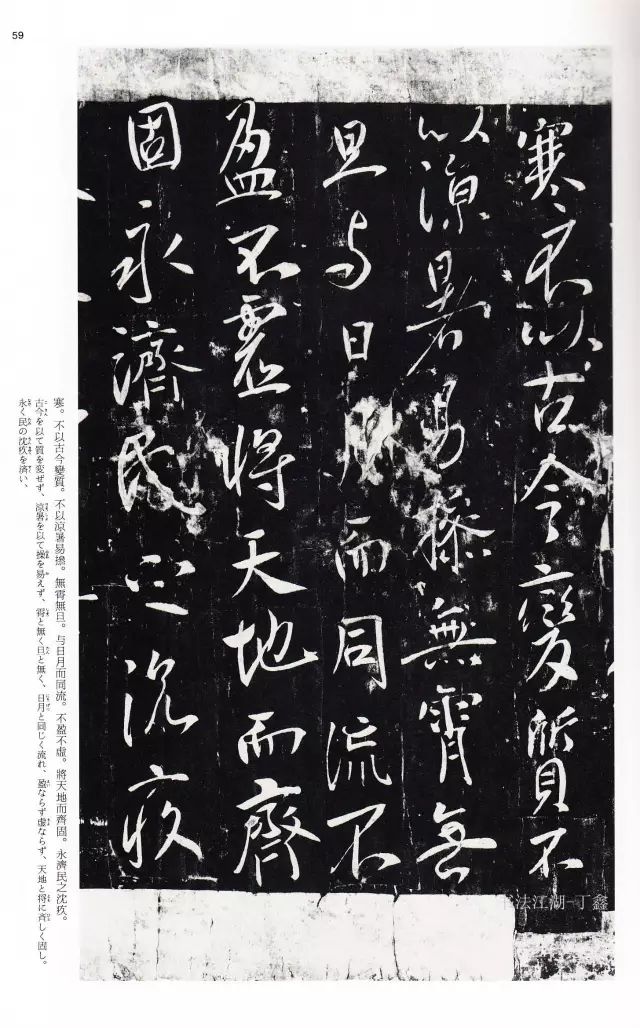 59
寒不以古今變質不
以涼暑易操無霄無
旦与日月而同流不
盈不虛將天地而齊
固永濟民之沉疚
寒。不以古今變質。不以涼暑易操。無霄無旦。与日月而同流。不盈不虛。將天地而齊固。永濟民之沈疚。
古今を以て質を変ぜず、涼暑を以て操を易えず、霄と無く旦と無く、日月と同じく流れ、盈ならず虚ならず、天地と将に斉しく固し。
永く民の沈疚を済い、
法江湖-丁鑫